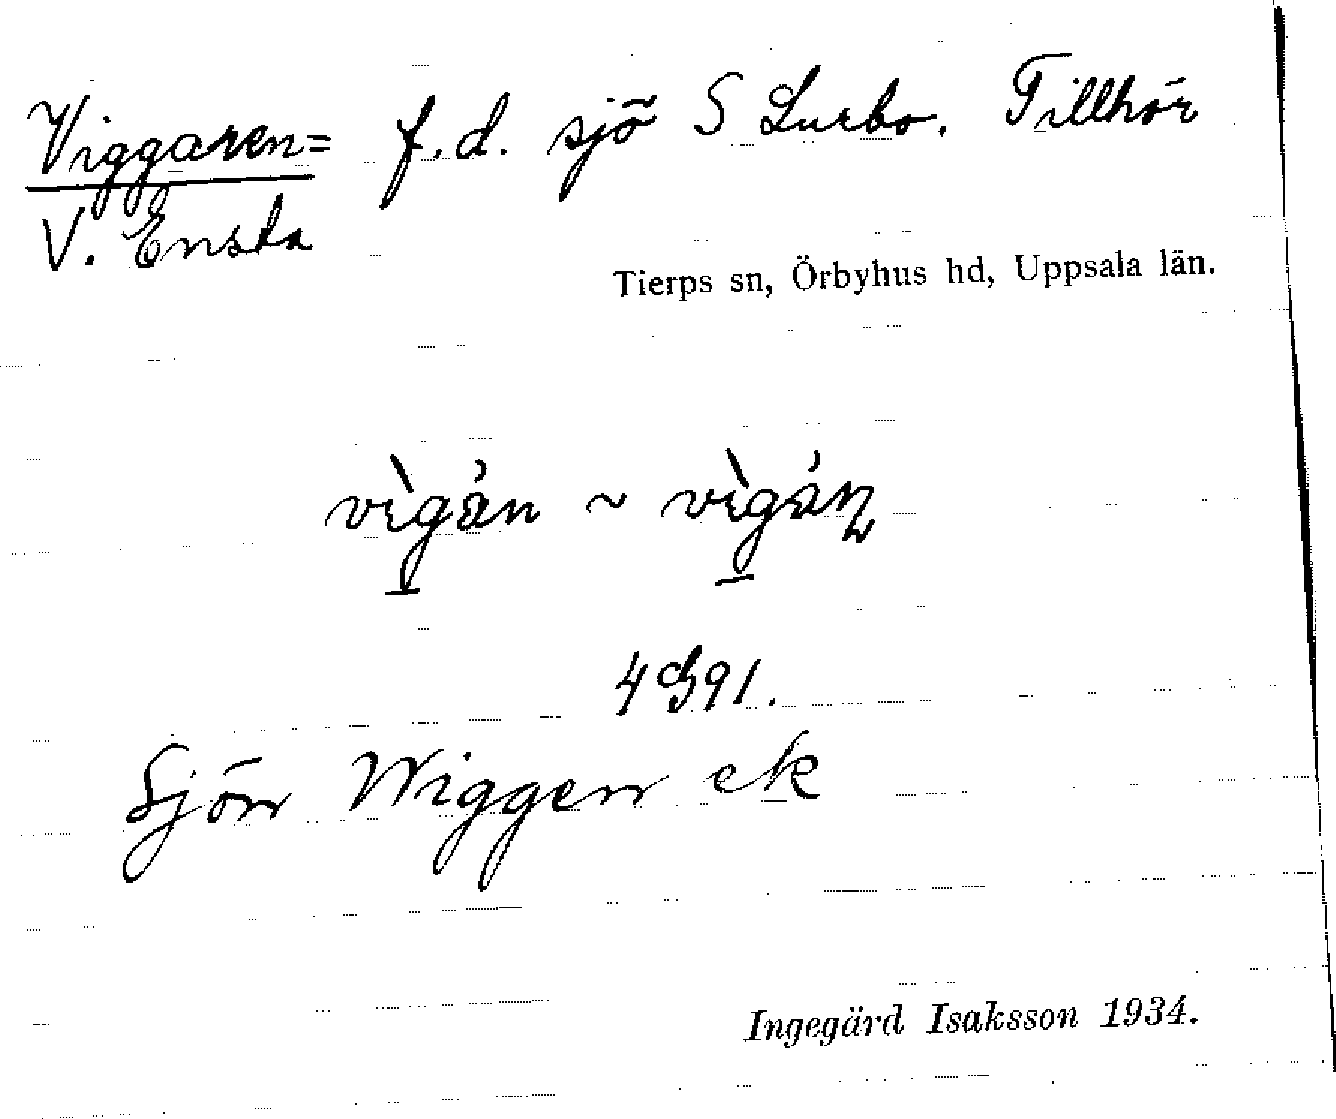 Viggaren = f.d. sjö S Lurbo. Tillhör
V. Ensta
Tierps sn, Örbyhus hd, Uppsala län.
vìgán ~ vìgáɳ
4 G 91.
Sjön Wiggen ek
Ingegärd Isaksson 1934.